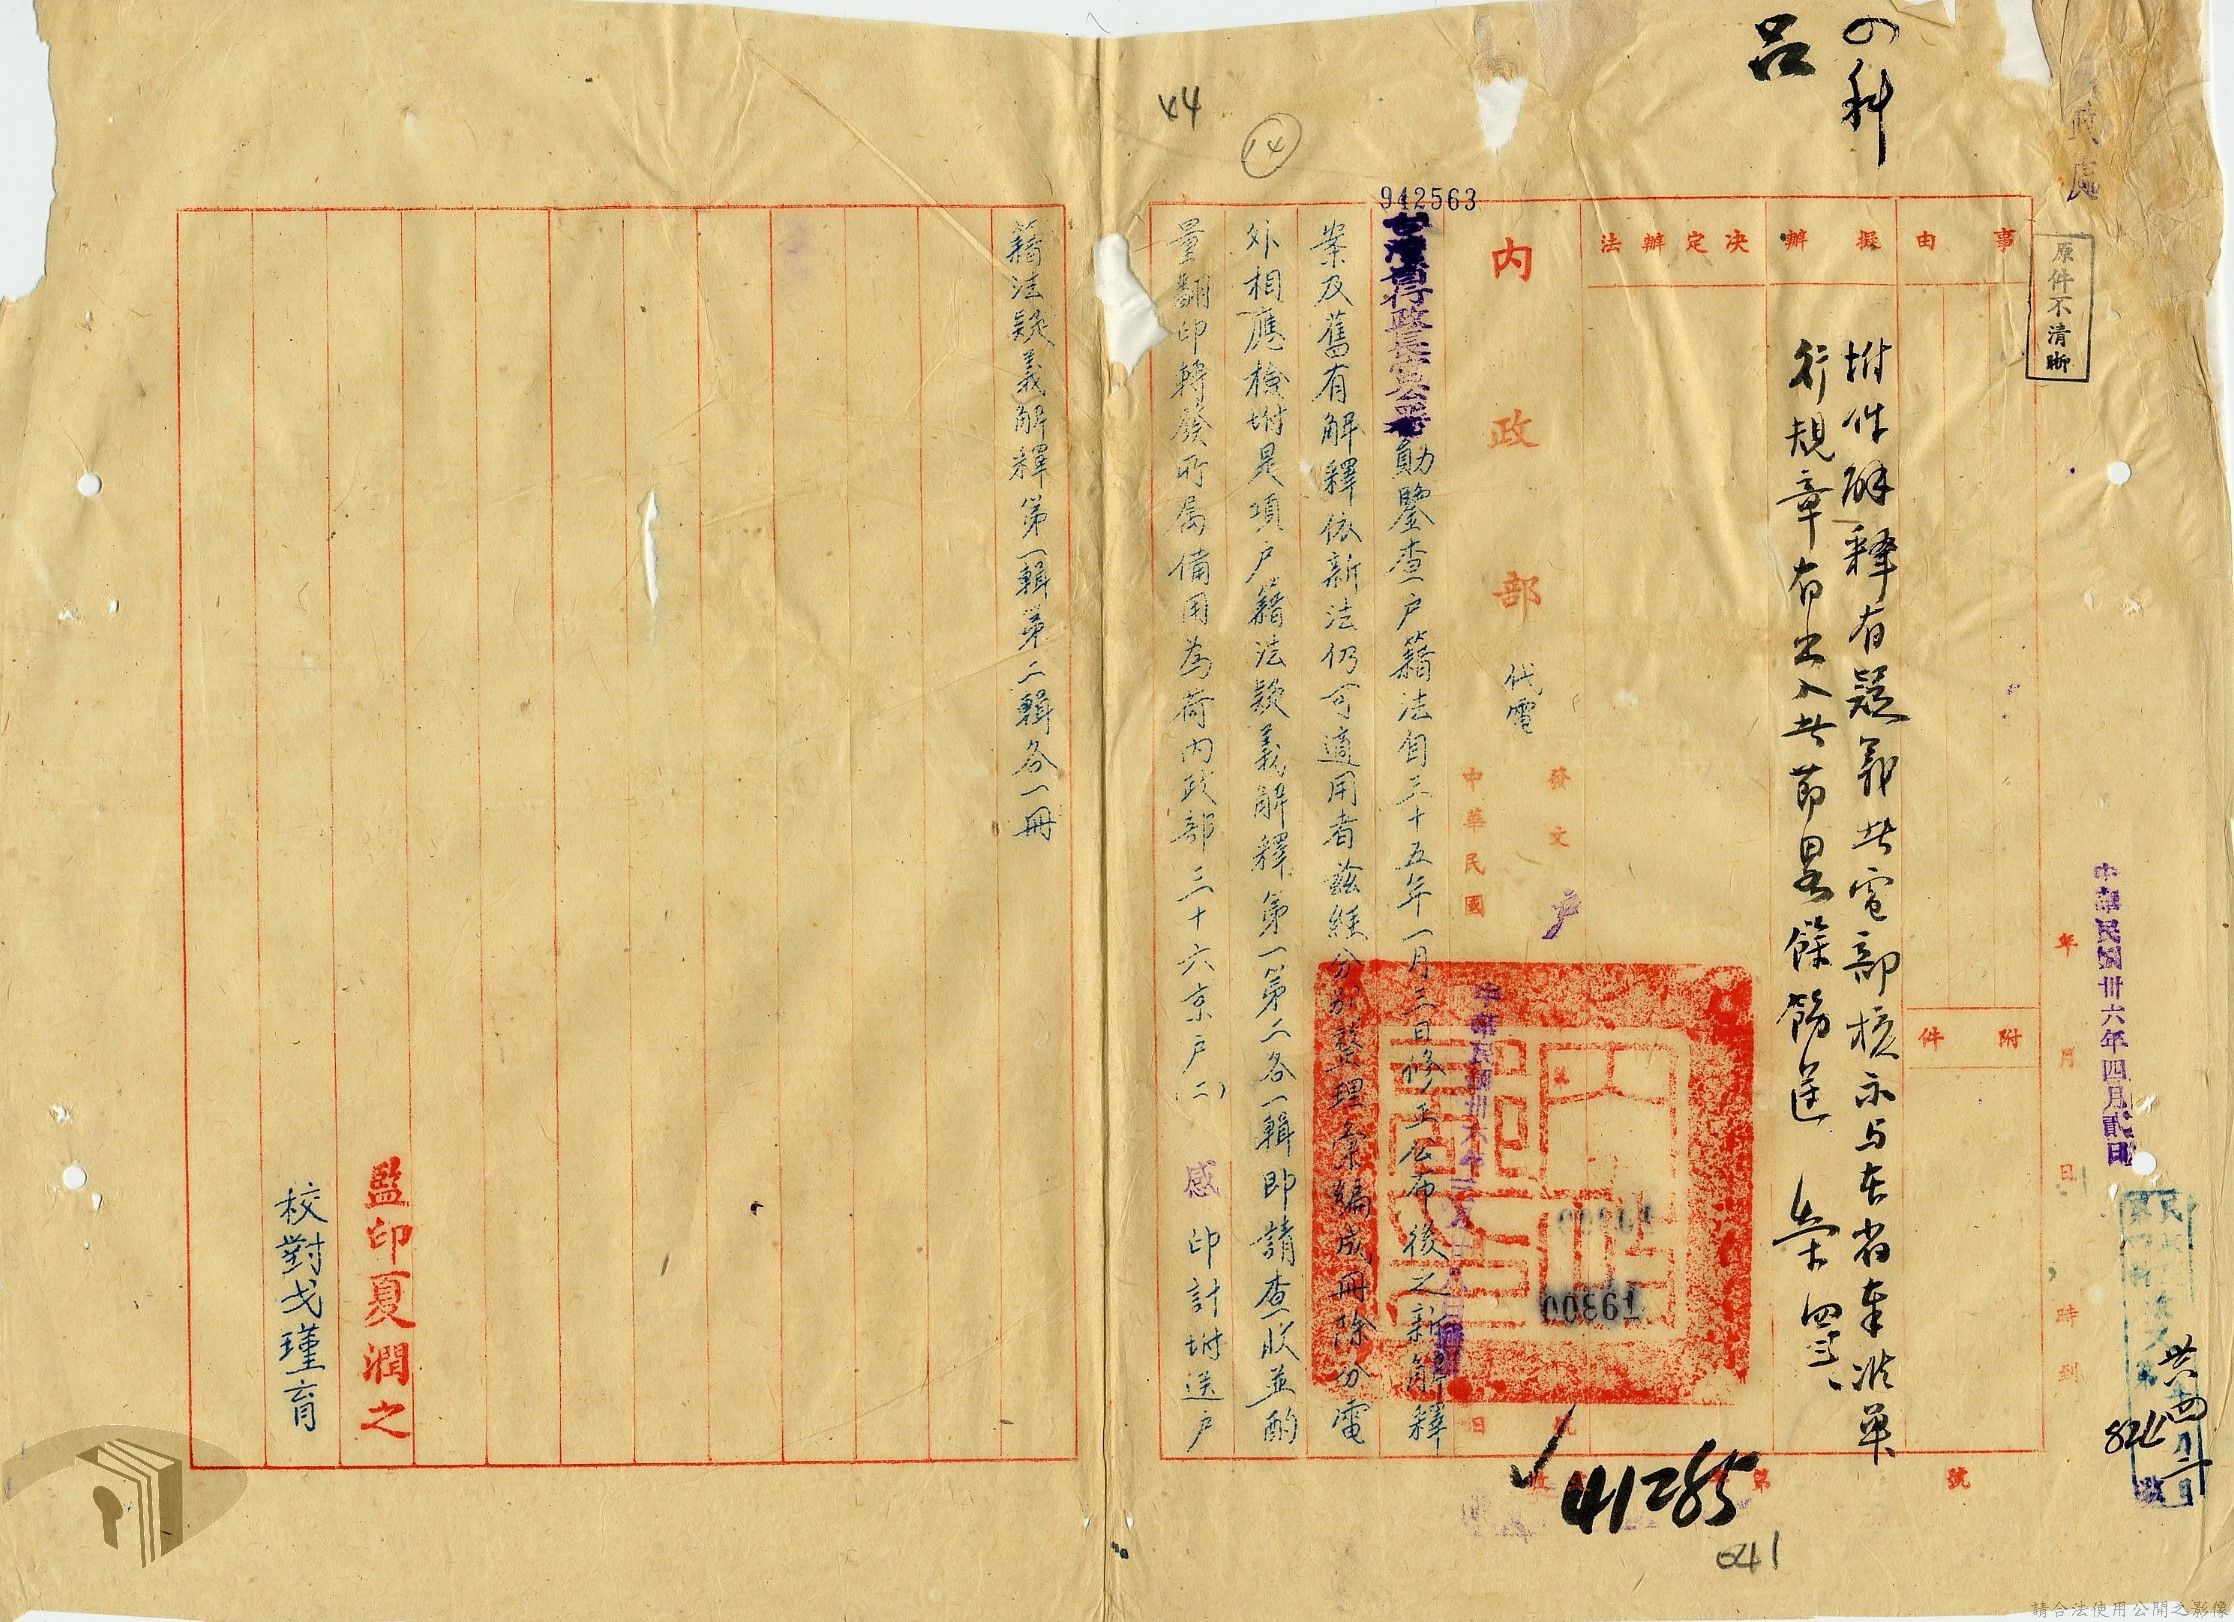 民政處
中華民國卅六年四月貳日
卅六四月二日
8224
原件不清晰
四科
呂
事由
附件
擬辦
決定辦法
年月日時到
號
附件解釋有疑義者電部核示与本省單
行規章有出入者
餘飭送
內政部
代電
發文
中華民國
戶
19300
中華民國卅六年三月廿八日
942563
台灣省行政長官公署勛鑒查戶籍法自三十五年一月三日修正公布後之新解釋
案及舊有解釋依新法仍可適用者茲經分別整理彙編成冊除分電
外相應檢坿是項戶籍法疑義解釋第一第二各一輯即請查收並酌
量翻印轉發所屬備用為荷內政部三十六京戶(二)感印計坿送戶
籍法疑義解釋第一輯第二輯各一冊
監印夏潤之
校對戈瑾育
41285
041
44
14
請合法使用公開之影像